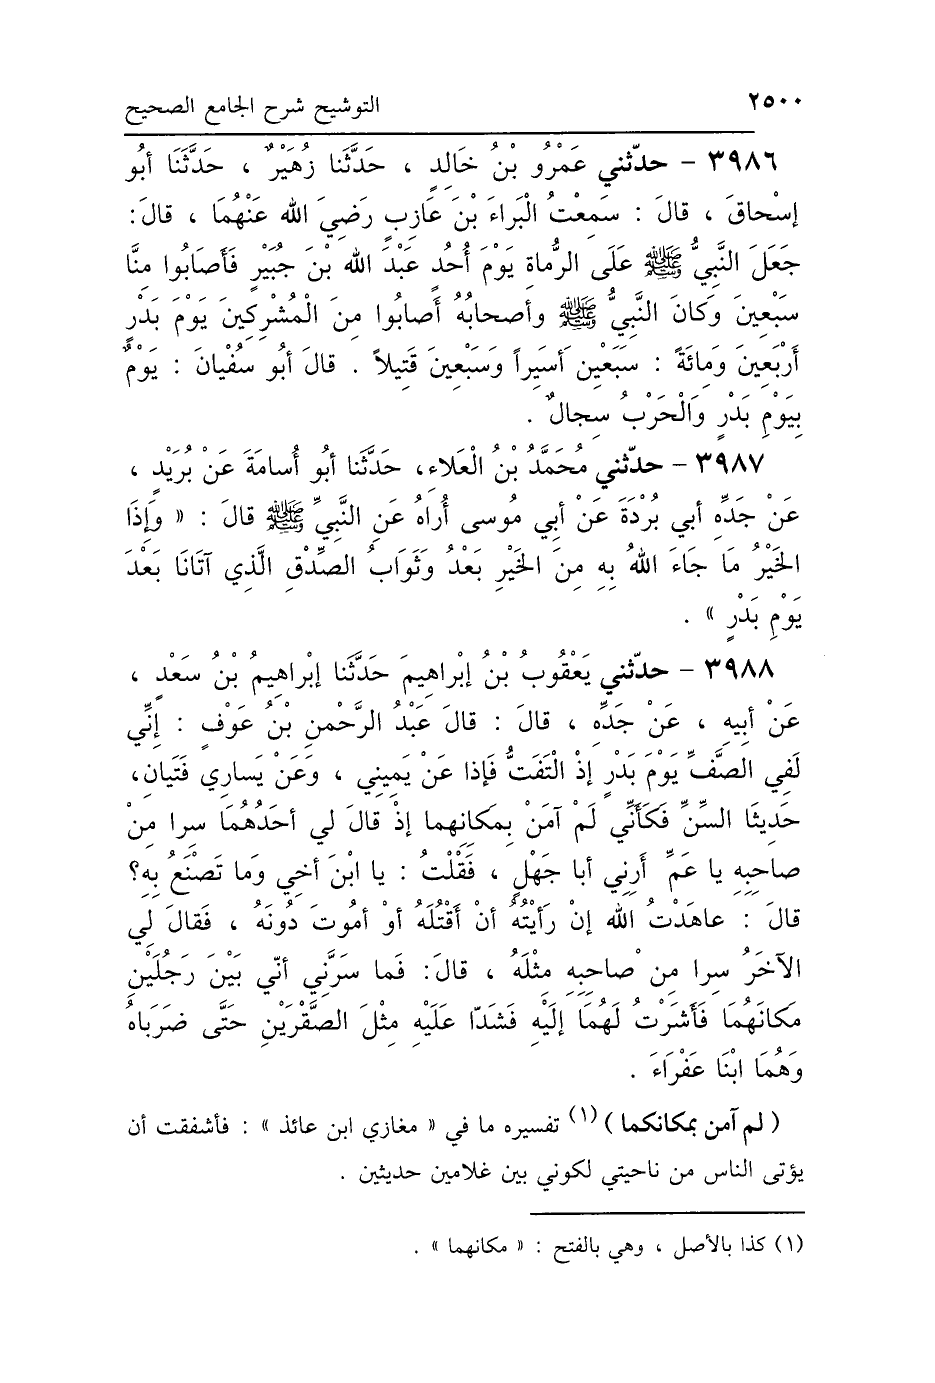 ٢٥٠٠ التوشيح شرح الجامع الصحيح
٣٩٨٦ - حدّثني عَمْرُو بْنُ خَالِدٍ ، حَدَّثَنا زُهَيْرٌ ، حَدَّثَنَا أبُو
إسْحاقَ ، قالَ : سَمِعْتُ الْبَراءَ بْنَ عَازِبٍ رَضِيَ الله عَنْهُمَا ، قالَ:
جَعَلَ النَّبِيُّ ﷺ عَلَى الرُّماةِ يَوْمَ أُحُدٍ عَبْدَ الله بْنَ جُبَيْرٍ فَأَصَابُوا مِنَّا
سَبْعِينَ وَكانَ النَّبِيُّ ﷺ وأصحابُهُ أَصابُوا مِنَ الْمُشْرِكِينَ يَوْمَ بَدْرٍ
أَرْبَعِينَ وَمِائَةً : سَبَعْين أَسَيراً وَسَبْعِينَ قَتِيلاً . قالَ أبُو سُفْيانَ : يَوْمٌ
بِيَوْمِ بَدْرٍ وَالْحَرْبُ سجالٌ .
٣٩٨٧ - حدّثني مُحَمَّدُ بْنُ الْعَلاءِ، حَدَّثَنا أبُو أُسامَةَ عَنْ بُرَيْدٍ ،
عَنْ جَدِّهِ أبي بُرْدَةَ عَنْ أبي مُوسى أُراهُ عَنِ النَّبِيِّ ﷺ قالَ : « وَإِذَا
الخَيْرُ مَا جَاءَ اللهُ بِهِ مِنَ الخَيْرِ بَعْدُ وَثَوَابُ الصِّدْقِ الَّذِي آتَانَا بَعْدَ
يَوْمِ بَدْرٍ » .
٣٩٨٨ - حدّثني يَعْقُوبُ بْنُ إبْراهِيمَ حَدَّثَنا إبْراهِيمُ بْنُ سَعْدٍ ،
عَنْ أبِيهِ ، عَنْ جَدِّهِ ، قالَ : قالَ عَبْدُ الرَّحْمنِ بْنُ عَوْفٍ : إنِّي
لَفِي الصَّفِّ يَوْمَ بَدْرٍ إذْ الْتَفَتُّ فَإذا عَنْ يَمِينِي ، وَعَنْ يَسارِي فَتَيانِ،
حَدِيثَا السِّنِّ فَكَأنِّي لَمْ آمَنْ بِمَكانِهِما إذْ قالَ لي أحَدُهُمَا سرا مِنْ
صاحِبِهِ يا عَمِّ أَرِني أبا جَهْلٍ ، فَقُلْتُ : يا ابْنَ أخِي وَما تَصْنَعُ بِهِ؟
قالَ : عاهَدْتُ الله إنْ رَأيْتُهُ أنْ أقْتُلَهُ أوْ أمُوتَ دُونَهُ ، فَقالَ لِي
الآخَرُ سرا مِنْ صاحِبِهِ مِثْلَهُ ، قالَ: فَما سَرَّنِي أنّي بَيْنَ رَجُلَيْنِ
مَكانَهُمَا فَأَشَرْتُ لَهُمَا إلَيْهِ فَشَدّا عَلَيْهِ مِثْلَ الصَّقْرَيْنِ حَتَّى ضَرَباهُ
وَهُمَا ابْنَا عَفْرَاءَ .
( لم آمن بمكانكما )(١) تفسيره ما في « مغازي ابن عائذ » : فأشفقت أن
يؤتى الناس من ناحيتي لكوني بين غلامين حديثين .
(١) كذا بالأصل ، وهي بالفتح : « مكانهما » .